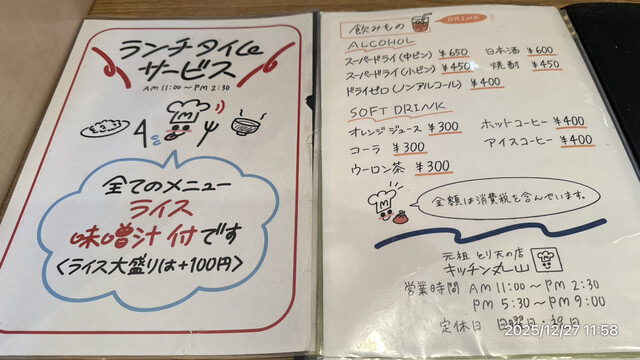 ランチタイム
サービス
AM 11:00 〜 PM 2:30
M
全てのメニュー
ライス
味噌汁 付です
〈ライス大盛りは+100円〉
飲みもの DRINK
ALCOHOL
スーパードライ(中ビン) ¥650 日本酒 ¥600
スーパードライ(小ビン) ¥450 焼酎 ¥450
ドライゼロ(ノンアルコール) ¥400
SOFT DRINK
オレンジジュース ¥300 ホットコーヒー ¥400
コーラ ¥300 アイスコーヒー ¥400
ウーロン茶 ¥300
M
金額は消費税を含んでいます。
元祖 とり天の店
キッチン丸山
営業時間 AM 11:00 〜 PM 2:30
PM 5:30 〜 PM 9:00
定休日 日曜日・祝日
2025/12/27 11:58